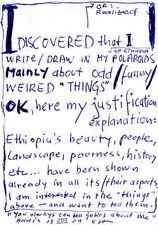 I DISCOVERED that I
WRITE/DRAW IN MY POLAROIDS
MAINLY about odd/funny/
WEIRED "THINGS"
OK, here my justification
explanation:
Ethiopia's beauty, people,
landscape, poorness, history
etc... have been shown
already in all its/their aspects
I am interested in the "things"
above - and want to tell them.
"You always can tell jokes about me